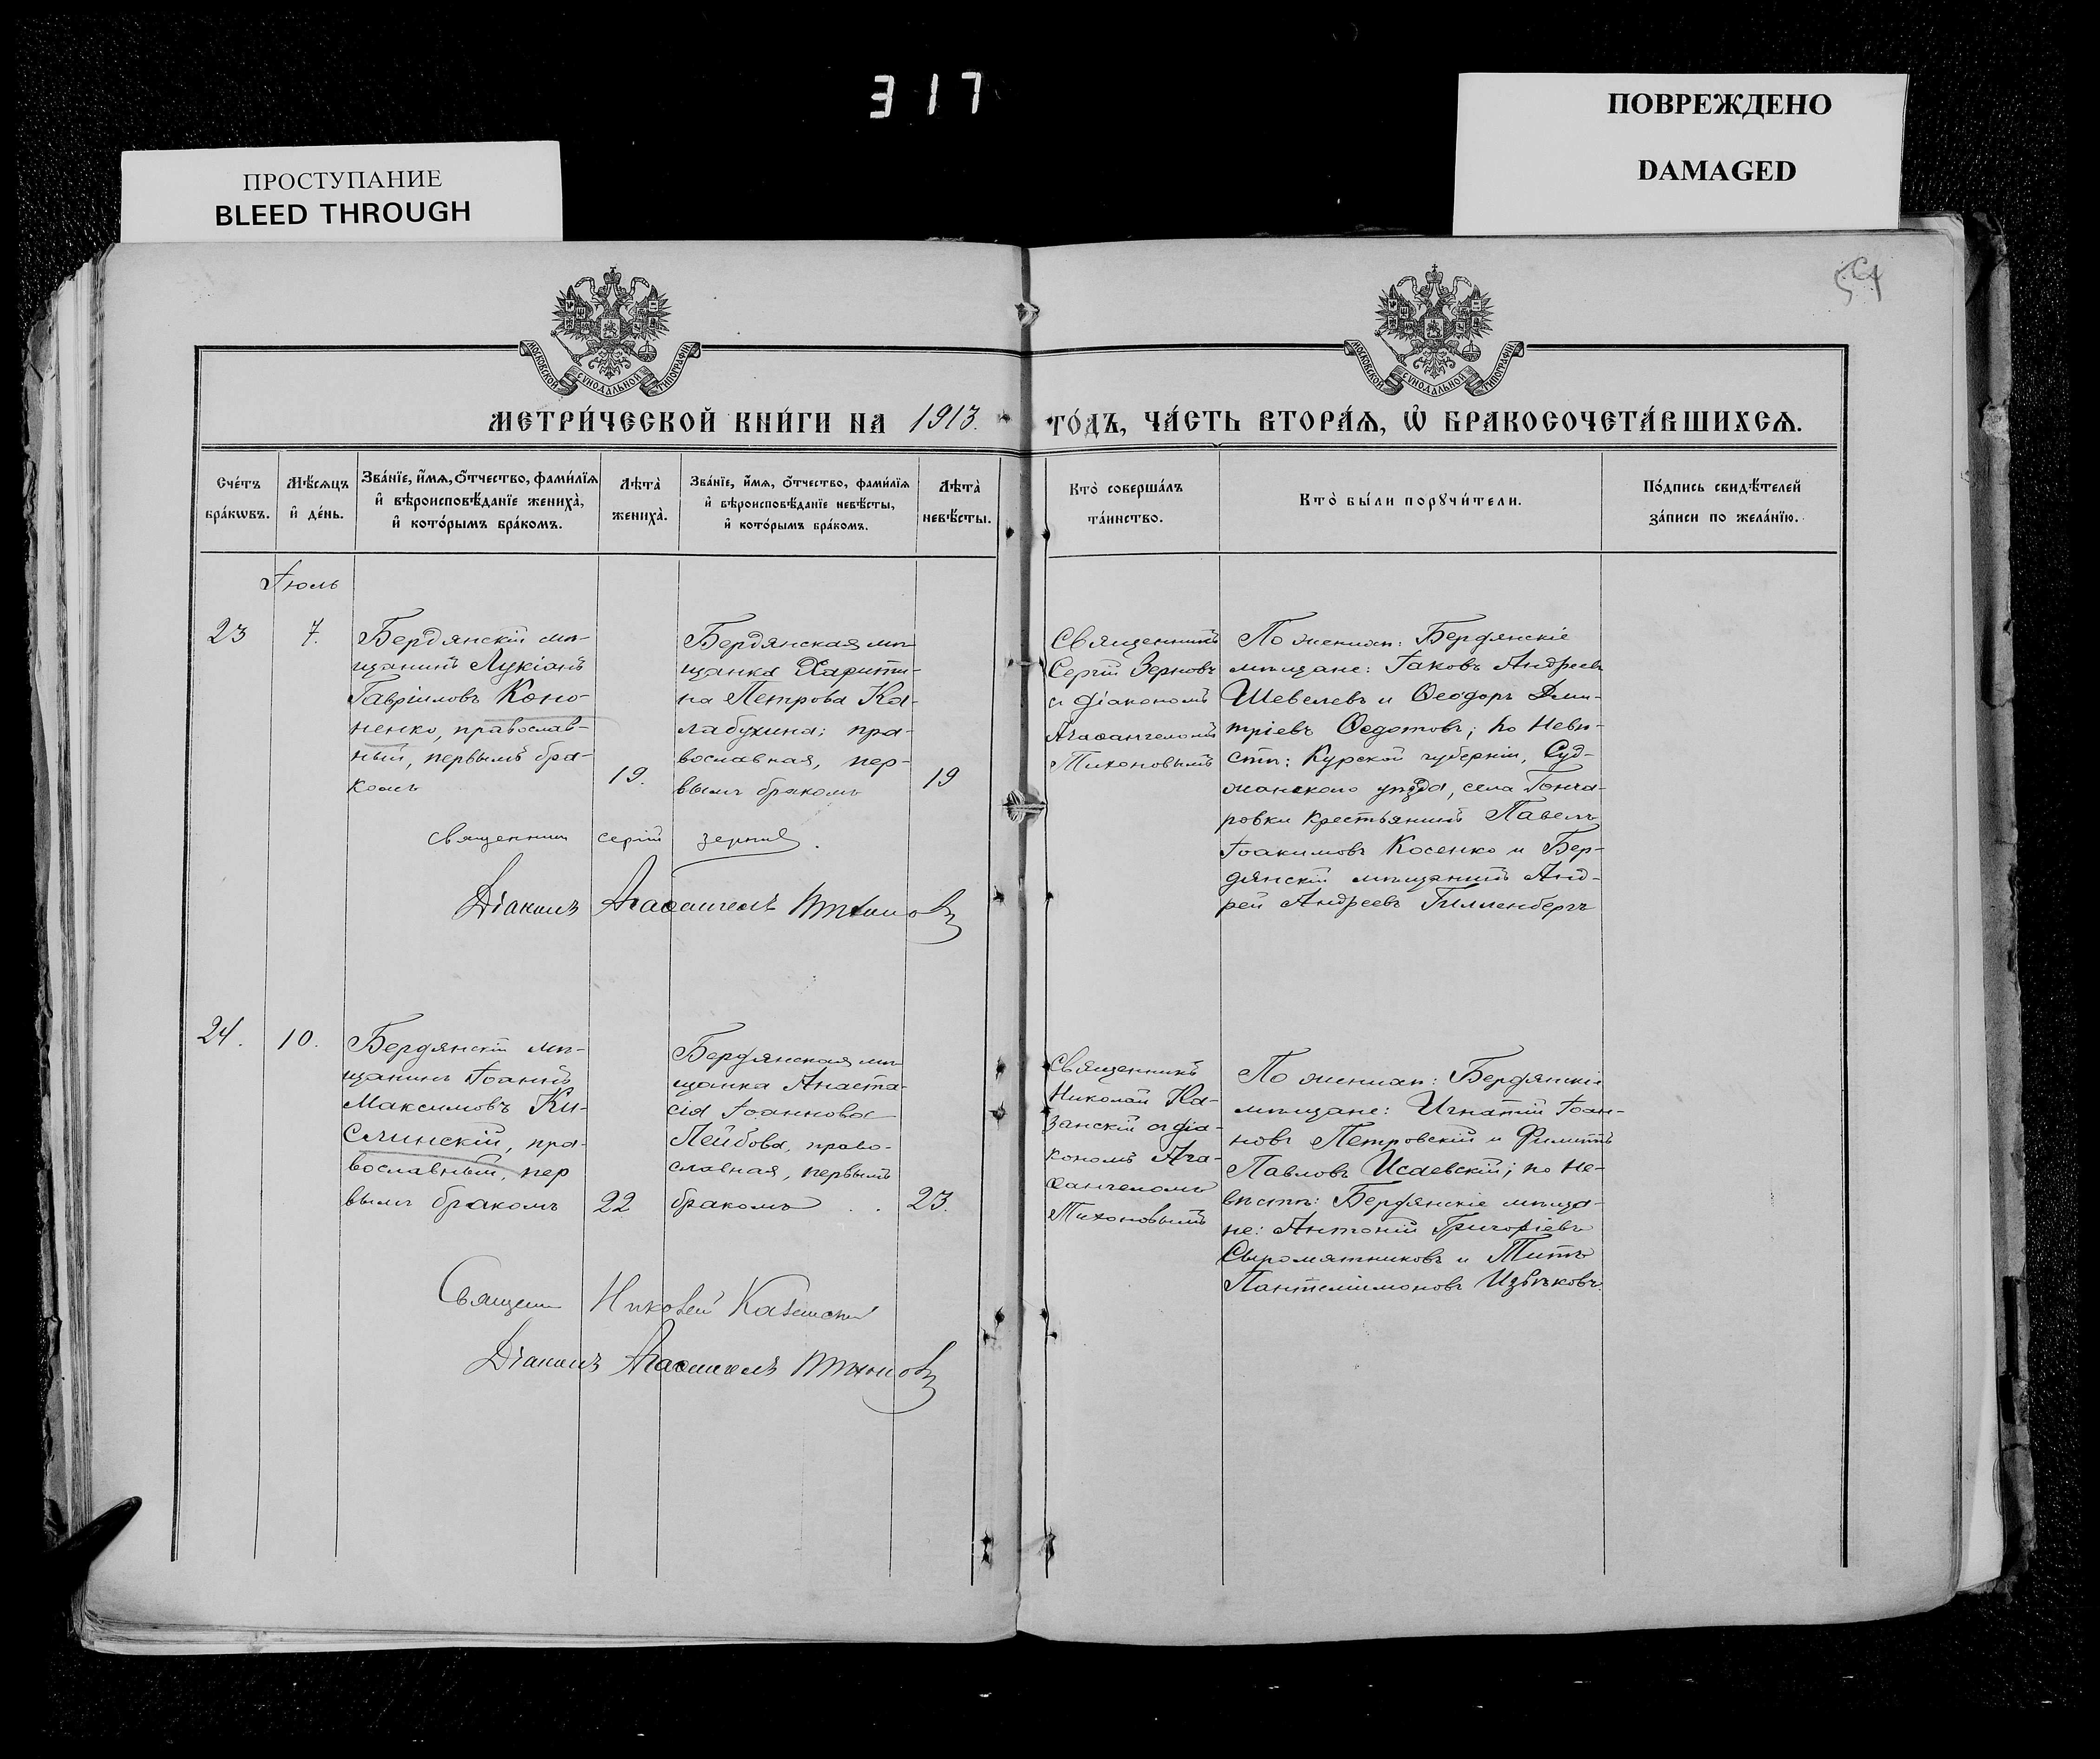 317
ПОВРЕЖДЕНО
DAMAGED
ПРОСТУПАНИЕ
BLEED THROUGH
54
МОСКОВСКОЙ СѴНОДАЛЬНОЙ ТИПОГРАФІИ
МОСКОВСКОЙ СѴНОДАЛЬНОЙ ТИПОГРАФІИ
МЕТРИ́ЧЕСКОЙ КНИ́ГИ НА 1913.
ГО́ДЪ, ЧА́СТЬ ВТОРА́Ѧ, Ѡ҆ БРАКОСОЧЕТА́ВШИХСѦ.
Сче́тъ
бра́кѡвъ.
Мѣ́сѧцъ
и҆ де́нь.
Зва́нїе, и҆́мѧ, ѻ҆́тчество, фами́лїѧ
и҆ вѣроисповѣ́данїе жениха̀,
и҆ кото́рымъ бра́комъ.
Лѣта̀
жениха̀.
Зва́нїе, и҆́мѧ, ѻ҆́тчество, фами́лїѧ
и҆ вѣроисповѣ́данїе невѣ́сты,
и҆ кото́рымъ бра́комъ.
Лѣта̀
невѣ́сты.
Кто̀ соверша́лъ
та́инство.
Кто̀ бы́ли порꙋчи́тели.
По́дпись свидѣ́телей
за́писи по жела́нїю.
Іюль
23
7.
Бердянскій мѣ-
щанинъ Лукіанъ
Гавріиловъ Коно-
ненко, православ-
ный, первымъ бра-
комъ
19.
Бердянская мѣ-
щанка Харити-
на Петрова Ка-
лабухина; пра-
вославная, пер-
вымъ бракомъ
19
Священникъ
Сергій Зерновъ
съ діакономъ
Агаѳангеломъ
Тихоновымъ
По женихѣ: Бердянскіе
мѣщане: Іаковъ Андреевъ
Шевелевъ и Ѳеодоръ Дми-
тріевъ Ѳедотовъ; по невѣ-
стѣ: Курской губерніи, Суд-
жанскаго уѣзда, села Гонча-
ровки крестьянинъ Павелъ
Іоакимовъ Косенко и Бер-
дянскій мѣщанинъ Анд-
рей Андреевъ Гилленбергъ
Священник Сергій Зернов.
Діаконъ Агаѳангелъ Тихоновъ
24.
10.
Бердянскій мѣ-
щанинъ Іоаннъ
Максимовъ Ки-
слинскій, пра-
вославный, пер
вымъ бракомъ
22
Бердянская мѣ
щанка Анаста-
сія Іоаннова
Лейбова, право-
славная, первымъ
бракомъ . .
23.
Священникъ
Николай Ка-
занскій съ діа-
кономъ Ага-
ѳангеломъ
Тихоновымъ
По женихѣ: Бердянскіе
мѣщане: Игнатій Іоан-
новъ Петровскій и Филиппъ
Павловъ Исаевскій; по не-
вѣстѣ: Бердянскіе мѣща-
не: Антоній Григоріевъ
Сыромятниковъ и Титъ
Пантелимоновъ
Священ Николай Казанскій
Діаконъ Агаѳангелъ Тихоновъ